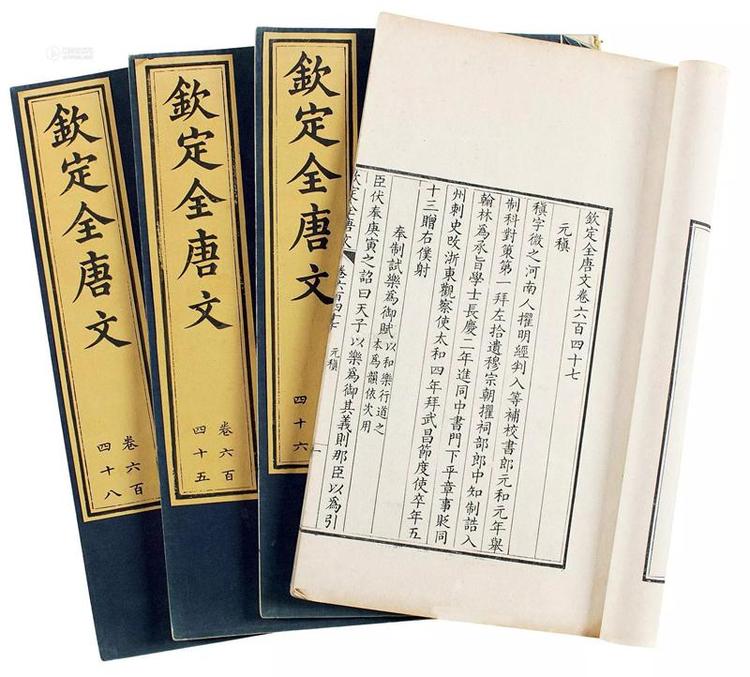 欽定全唐文卷六百四十七
元稹
稹字微之河南人擢明經判入等補校書郎元和元年舉
制科對策第一拜左拾遺穆宗朝擢祠部郎中知制誥入
翰林為承旨學士長慶二年進同中書門下平章事貶同
州刺史改浙東觀察使太和四年拜武昌節度使卒年五
十三贈右僕射
奉制試樂為御賦以和樂行道之
本為韻依次用
臣伏奉庚寅之詔曰天子以樂為御其義則那臣以為引
欽定全唐文 卷六百四十七 元稹 一
欽定全唐文
四十六
欽定全唐文
卷六百
四十五
欽定全唐文
卷六百
四十八